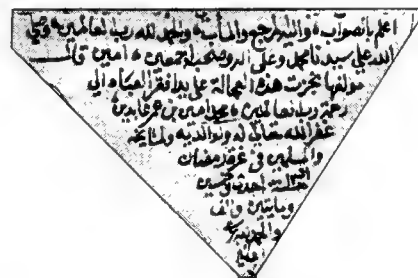 اعلم بالصواب واليه المرجع والمآب والحمد لله رب العالمين وصلى
الله على سيدنا محمد وعلى آله وصحبه اجمعين امين قال
مؤلفها نجزت هذه العجالة على يد افقر العباد الى
رحمة رب العالمين محمد امين بن عمر عابدين
غفر الله تعالى له ولوالديه ولمشايخه
والمسلمين في غرة رمضان
سنة احدى وخمسين
ومايتين والف
والحمد لله